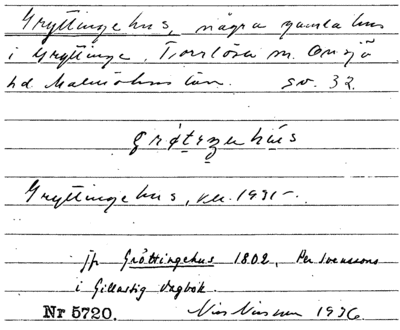 Gryttingehus, några gamla hus
i Gryttinge, Torrlösa sn. Onsjö
hd Malmöhus län. sv. 32.
Gryttingehus, 1931
jfr Gröttingehus 1802, Per Svenssons
i Gillastig dagbok.
Nr 5720. Nils 1936